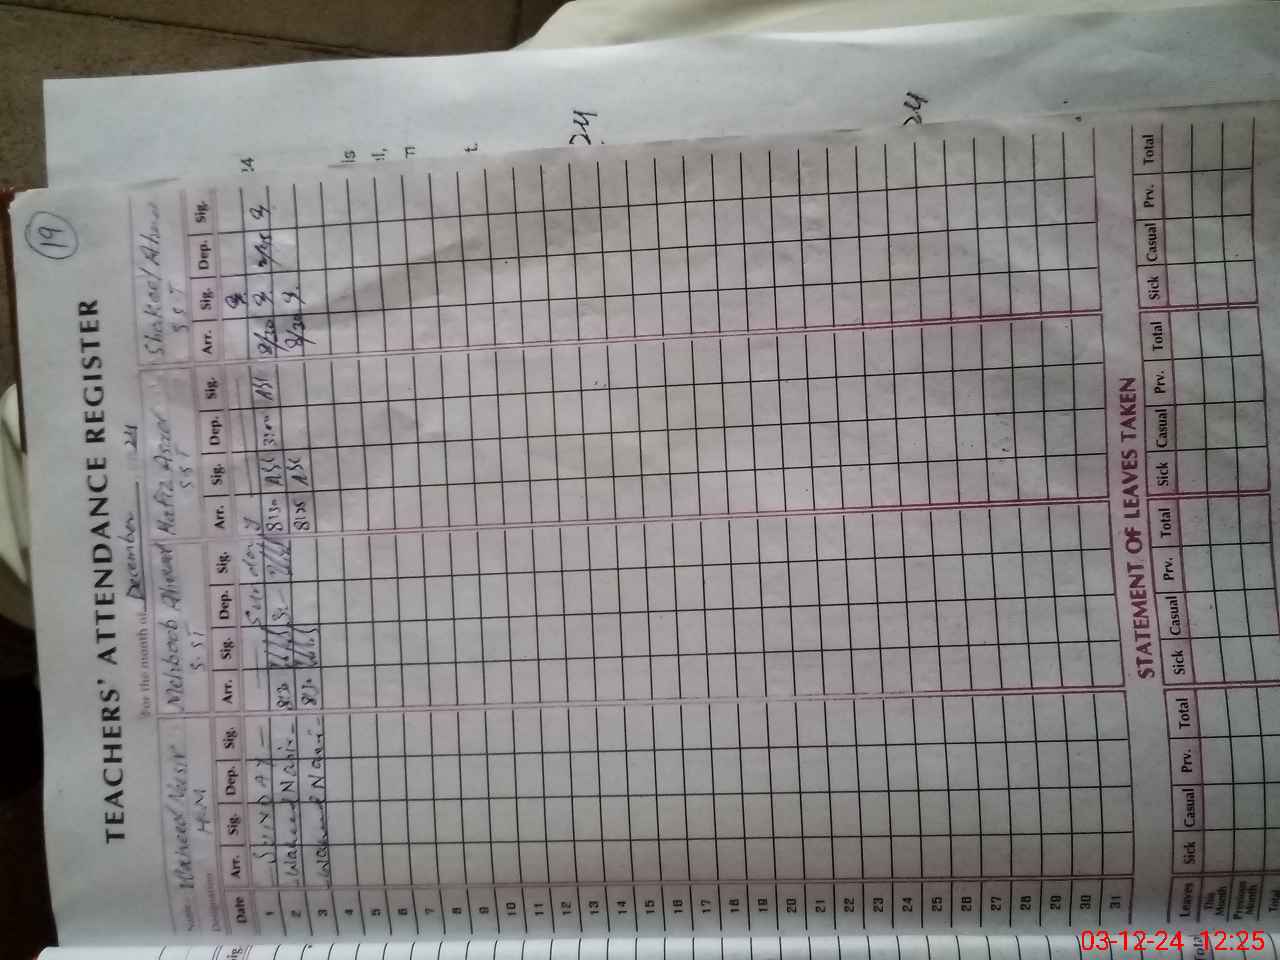 19
TEACHERS' ATTENDANCE REGISTER
For the month of December 24
Name: Waheed Nasir Mehboob Ahmad Hafiz Asad Shakeel Ahmad
Designation HM S.ST SST SST
Date Arr. Sig. Dep. Sig. Arr. Sig. Dep. Sig. Arr. Sig. Dep. Sig. Arr. Sig. Dep. Sig.
1 SUNDAY Sunday
2 Waheed Nasir 8:30 8:30 3:00 8/30
3 Waheed Nasir 8:30 8:25 8/30
4
5
6
7
8
9
10
11
12
13
14
15
16
17
18
19
20
21
22
23
24
25
26
27
28
29
30
31
STATEMENT OF LEAVES TAKEN
Leaves Sick Casual Prv. Total Sick Casual Prv. Total Sick Casual Prv. Total Sick Casual Prv. Total
This Month
Previous Month
Total
24
24
03-12-24 12:25